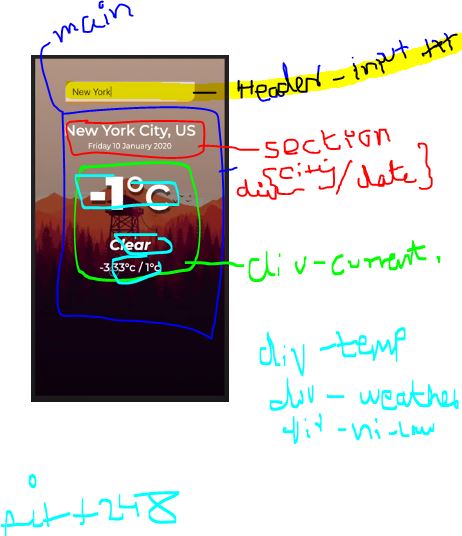 main
New York
Header - input txt
New York City, US
Friday 10 January 2020
section
div {city/date}
-1°c
Clear
-3.33°c / 1°c
div-current.
div-temp
div-weather